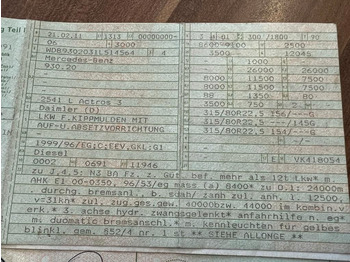 ng Teil I
21.02.11 1313 00000000-
06 3000
WDB9302031L514564 4
Mercedes-Benz
930.20
2541 L Actros 3
Daimler (D)
LKW F.KIPPMULDEN MIT
AUF-U.ABSETZVORRICHTUNG
-
1999/96/EG;C;EEV;GKL:G1
Diesel
0002 0691 11946
2 01 300/1800 90
2500
3500
- 1000 -
- 26000 26000
8000 11500 7500
8000 11500 7500
- 83 - 80
3500 750 2
315/80R22,5 156/---G
315/80R22,5 ---/145G
315/80R22,5 154/---G
-
- -/-
E VK418054
zu J.4,5: NJ BA Fz. z. Güt. bef. mehr als 12t tkw* m.
AHK E1 00-0350, 96/53/eg mass (a) 8400* zu O.1: 24000m
durchg. bremsanl. b. sdah/ zanh zul. anh.l. 12500,
v=31kn* zul.zug.ges.gew. 40000bzw. 44000 im kombin.v
erk.* 3. achse hydr.zwangsgelenkt* anfahrhilfe n. eg*
m. duomatic bremsanschl.* m. kennleuchten für gelbes
blinkl. gem. §52/4 nr. 1 st ** SIEHE ALLONGE **